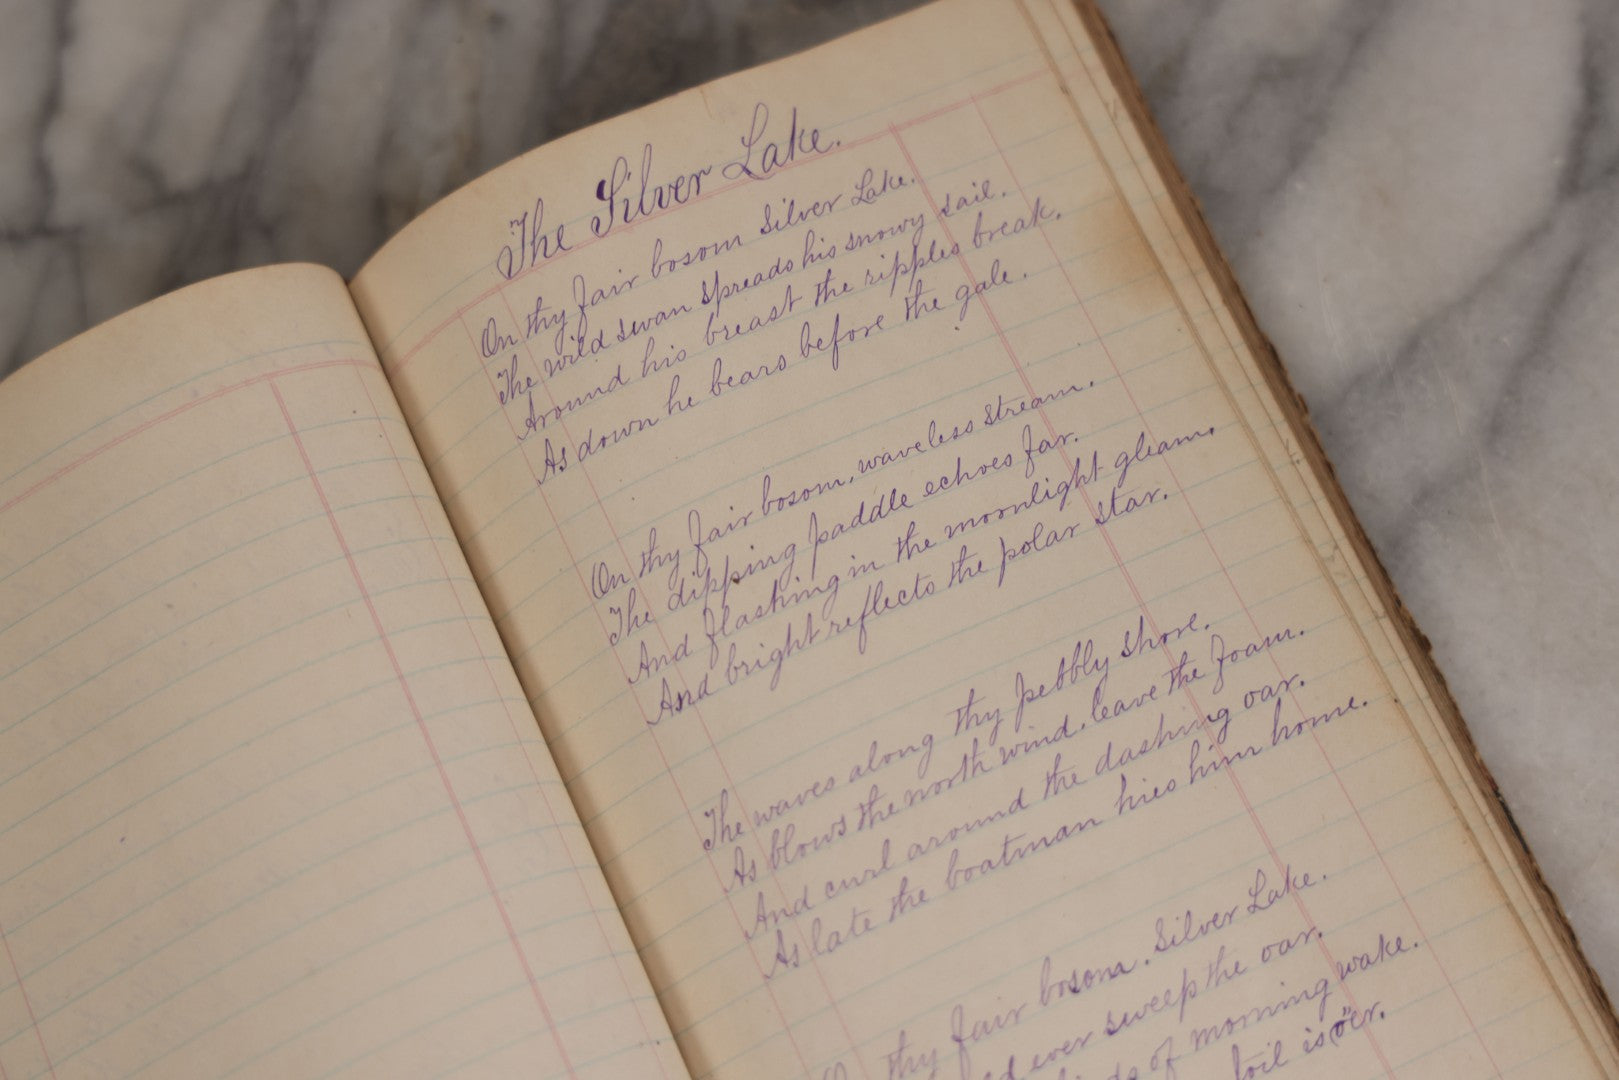 The Silver Lake.
On thy fair bosom Silver Lake.
The wild swan spreads his snowy sail.
Around his breast the ripples break.
As down he bears before the gale.
On thy fair bosom, waveless stream.
The dipping paddle echoes far.
And flashing in the moonlight gleam.
And bright reflects the polar star.
The waves along thy pebbly shore.
As blows the north wind, leave the foam.
And curl around the dashing oar.
As late the boatman hies him home.
thy fair bosom. Silver Lake.
ever sweep the oar.
of morning wake.
toil is o'er.